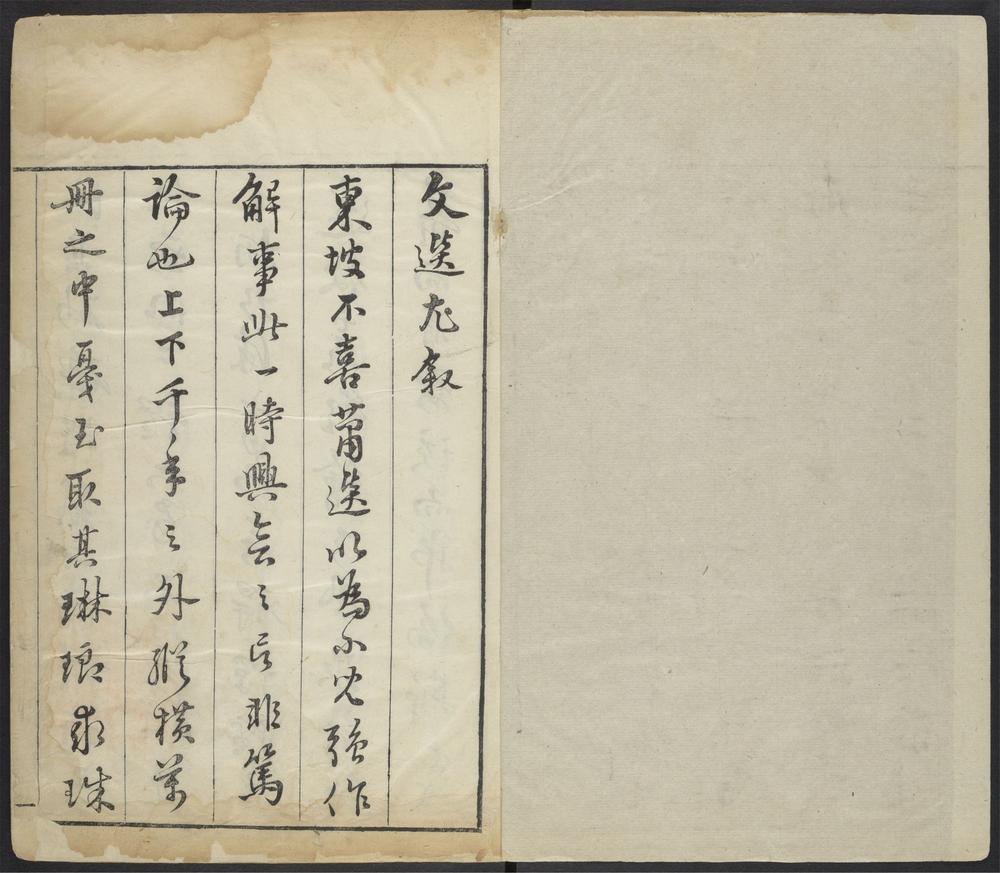 文選尤叙
東坡不喜蕭選以為小兒強作
解事此一時興會之言非篤
論也上下千年之外縱橫萬
冊之中戞玉取其琳瑯求珠
一